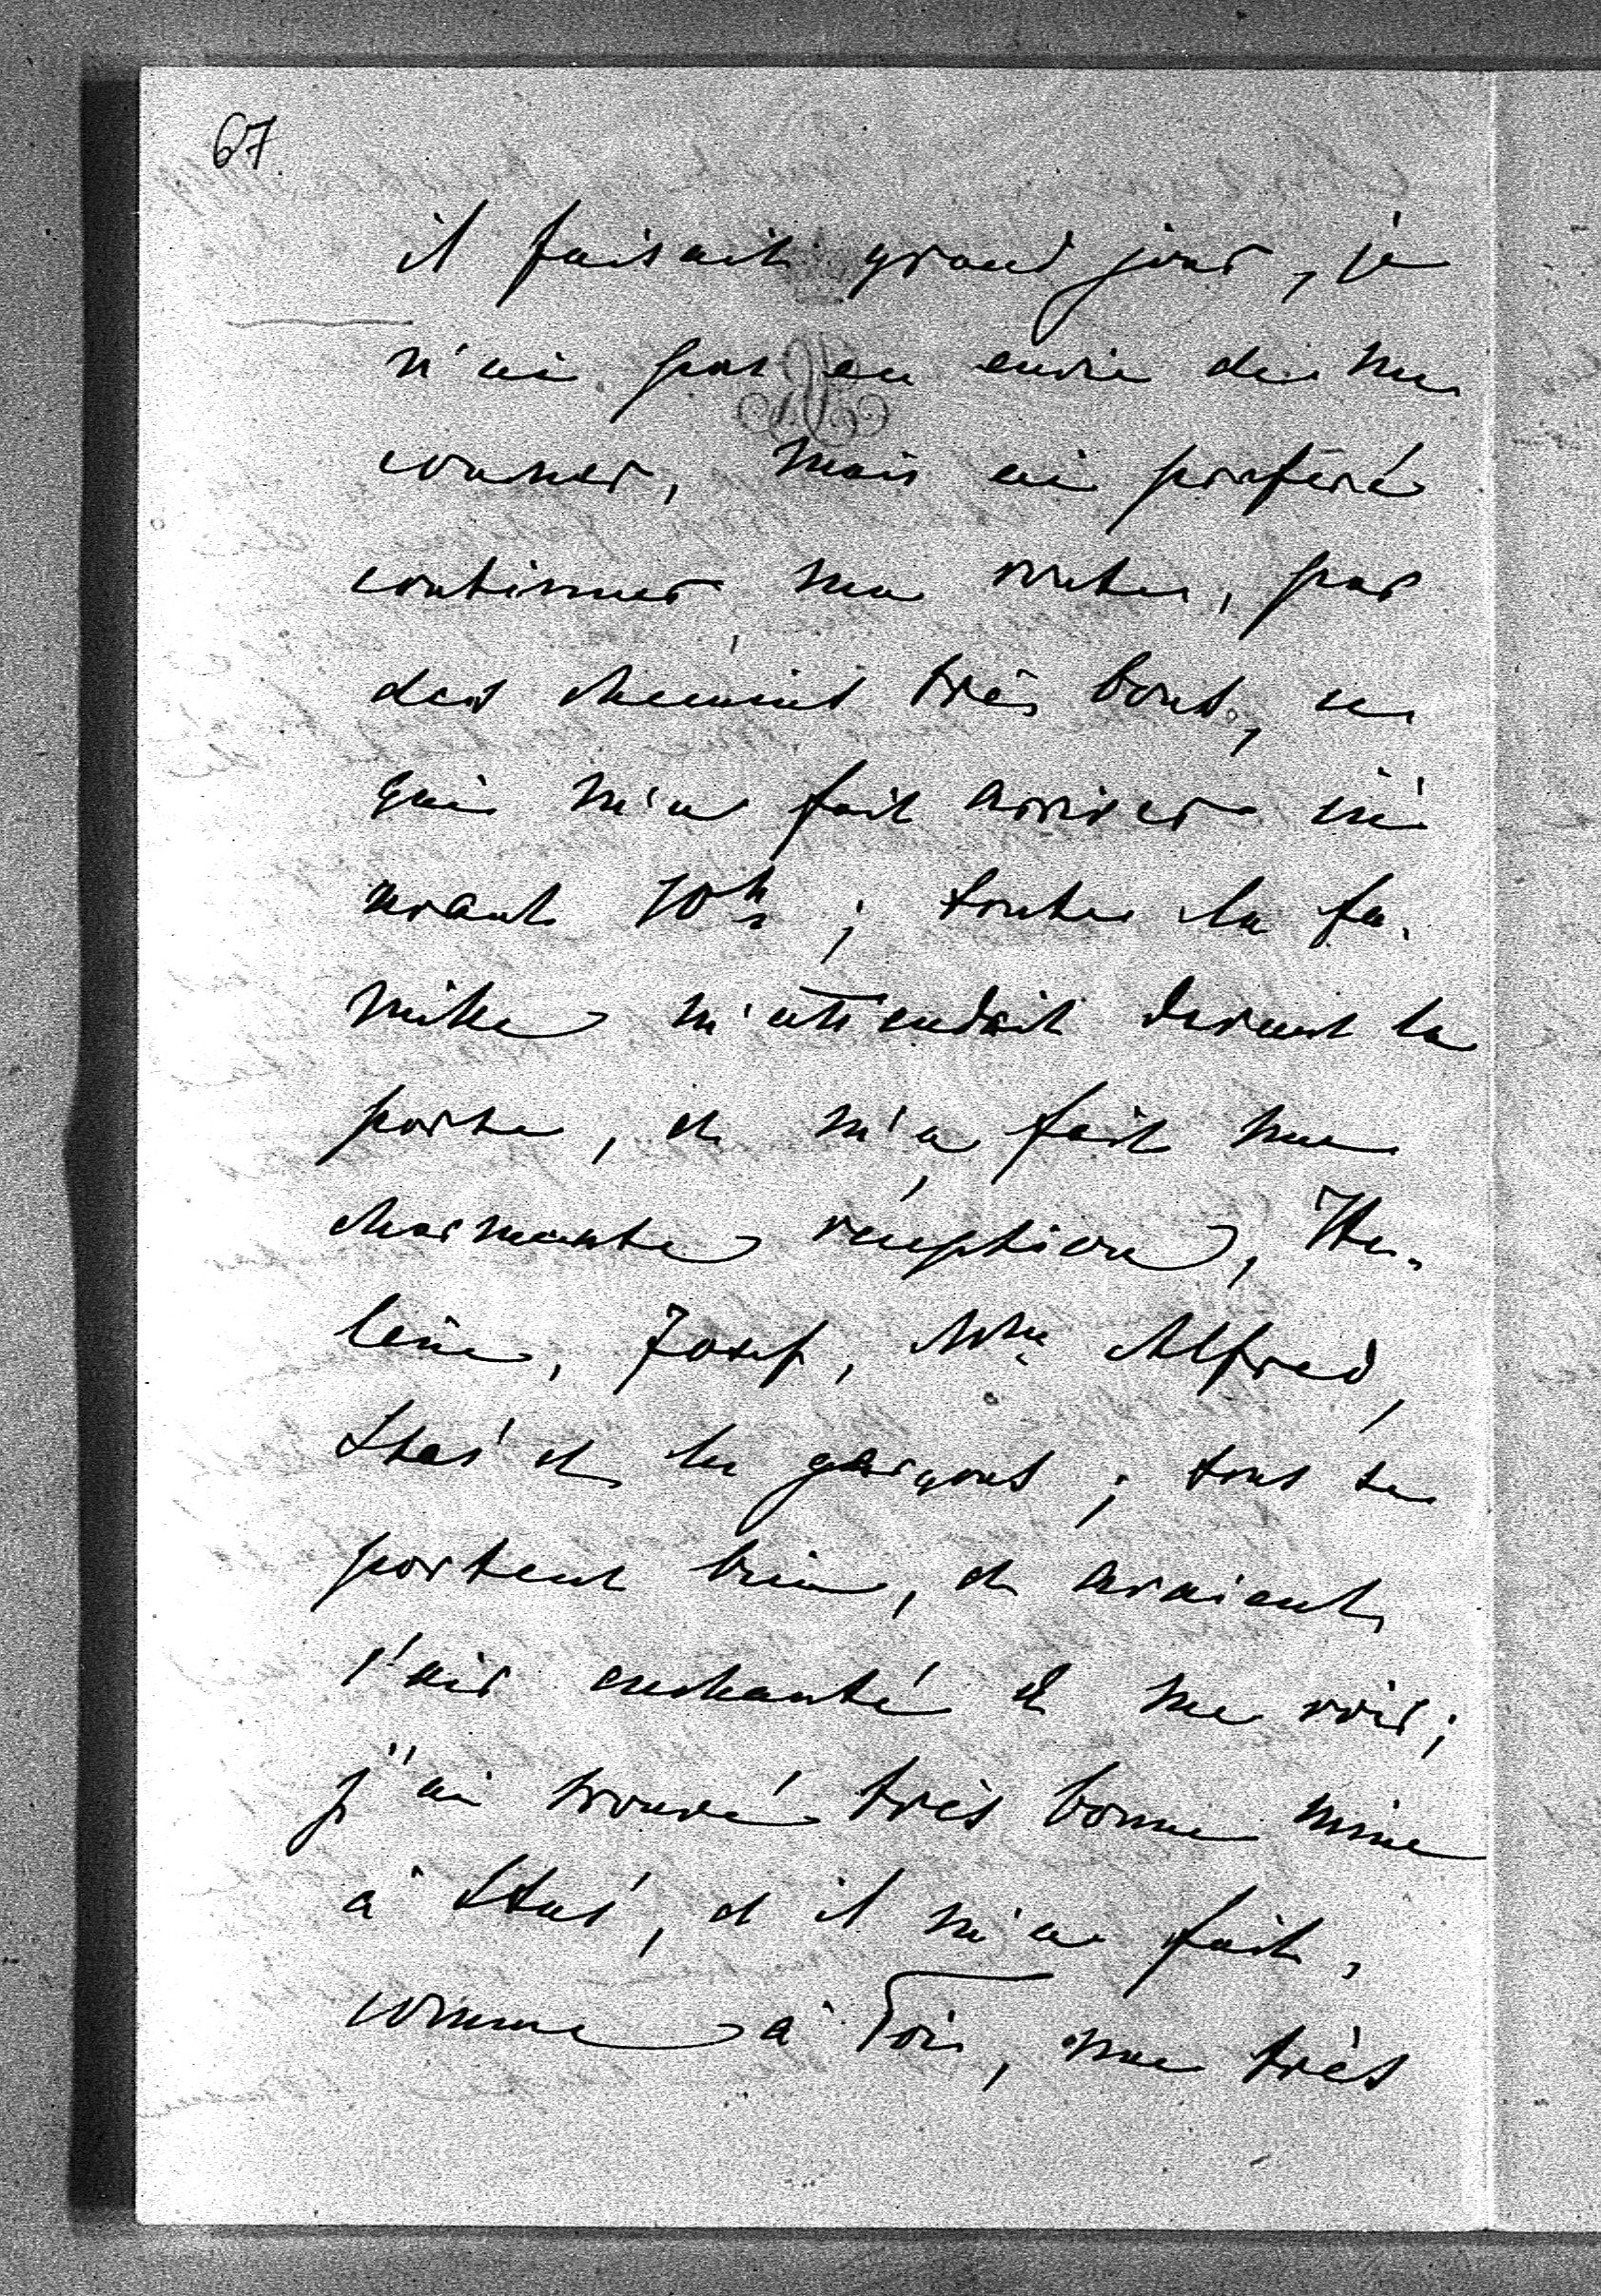 67
il faisait grand jour, je
n'ai pas eu envie de me
coucher, mais ai préféré
continuer ma route, par
des chemins très bons, ce
qui m'a fait arriver ici
avant 10 h; toute la fa-
mille m'attendait devant la
porte, et m'a fait une
charmante réception, He-
lène, Josef, Mme Alfred,
Staś et les garçons; tous se
portent bien, et avaient
l'air enchanté de me voir;
j'ai trouvé très bonne mine
à Staś, et il m'a fait,
comme à Toi, une très